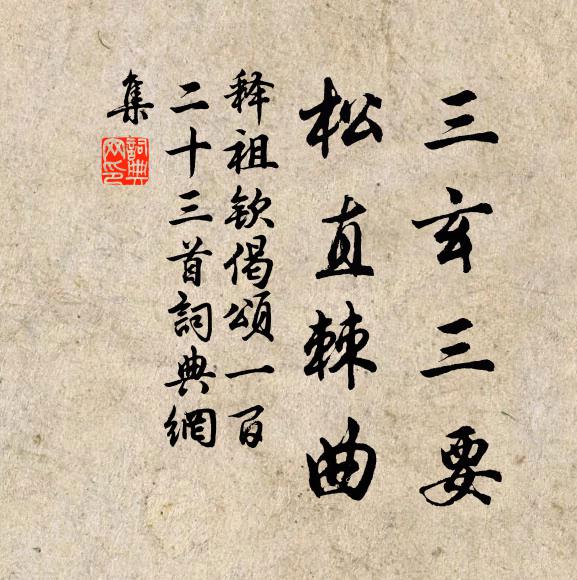 三玄三要
松直棘曲
释祖钦偈頌一百
二十三首詞典網
集
詞典網印